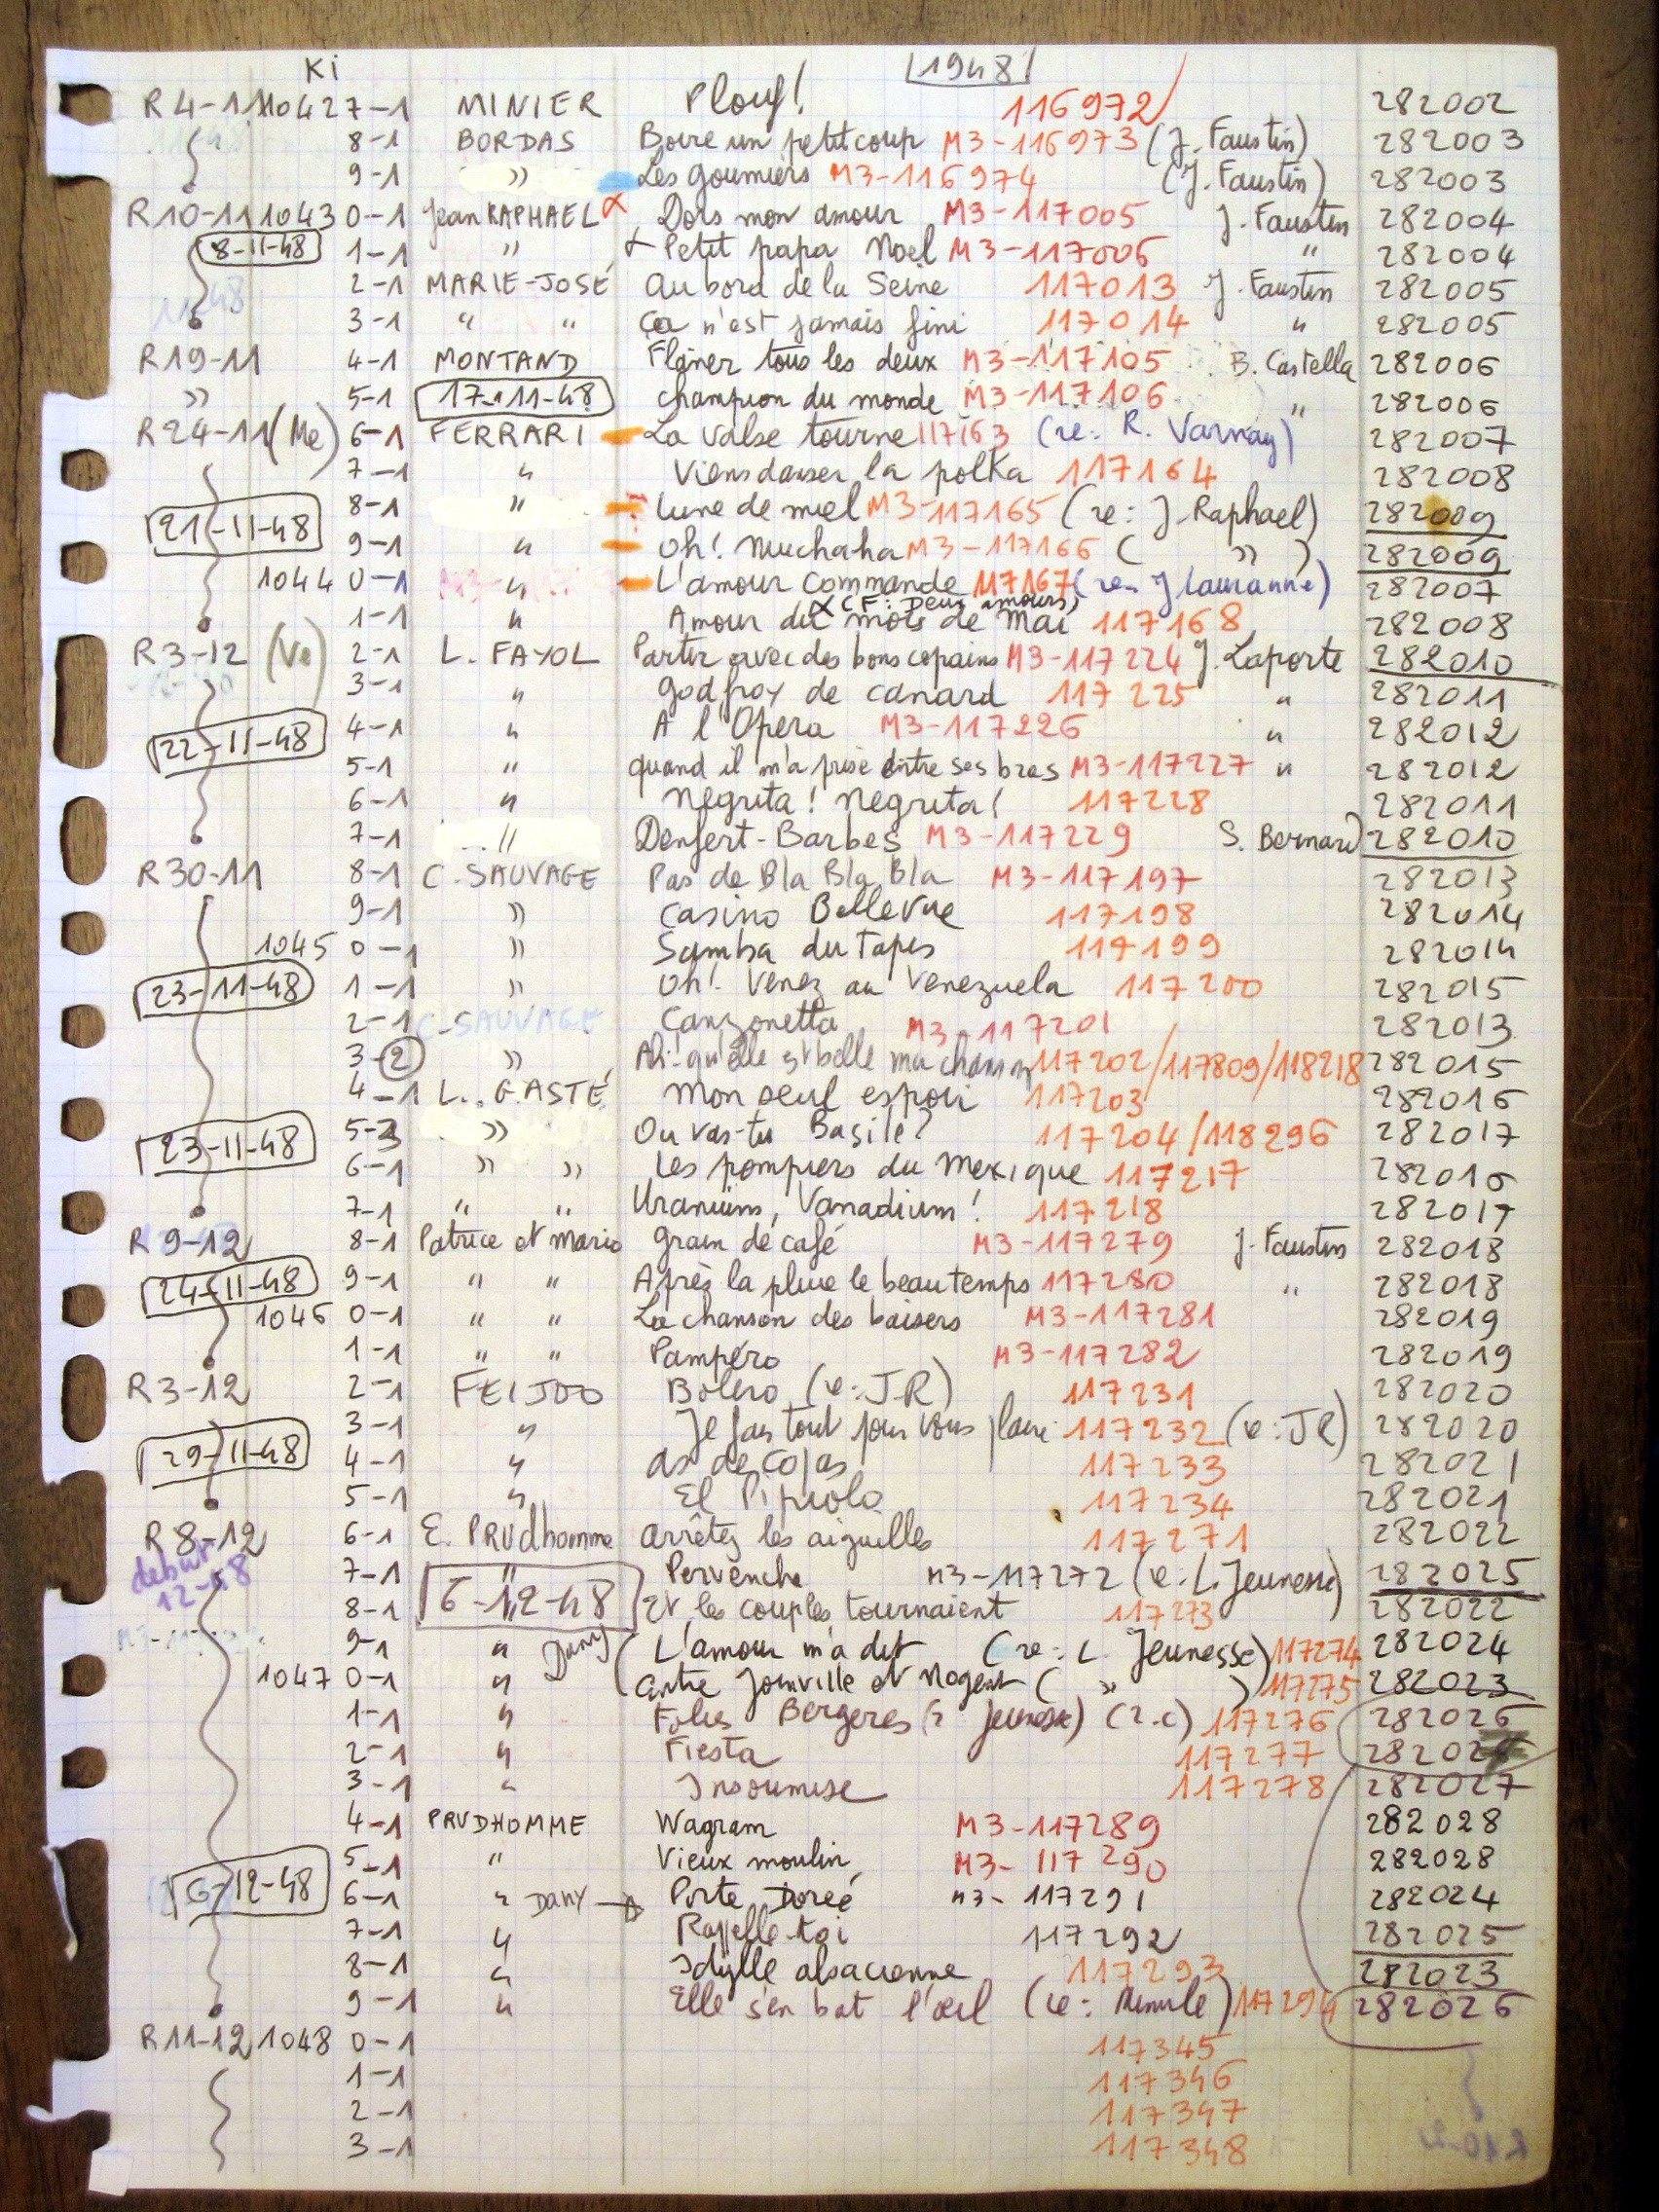 Ki 1948
R4-11 10427-1 MINIER Plouf! 116972 282002
8-1 BORDAS Boire un petit coup M3-116973 (J. Faustin) 282003
9-1 " Les goumiers M3-116974 (J. Faustin) 282003
R10-11 1043 0-1 Jean RAPHAEL Dors mon amour M3-117005 J. Faustin 282004
8-11-48 1-1 " Petit papa Noel M3-117006 " 282004
2-1 MARIE-JOSÉ Au bord de la Seine 117013 J. Faustin 282005
3-1 " " Ça n'est jamais fini 117014 " 282005
R19-11 4-1 MONTAND Flâner tous les deux M3-117105 B. Castella 282006
" 5-1 17-11-48 champion du monde M3-117106 " 282006
R24-11 (Me) 6-1 FERRARI La valse tourne 117163 (re: R. Varnay) 282007
7-1 " Viens danser la polka 117164 282008
8-1 " Lune de miel M3-117165 (re: J. Raphael) 282009
21-11-48 9-1 " Oh! Muchaha M3-117166 ( " ) 282009
1044 0-1 " L'amour commande 117167 (re- J Lauranne) 282007
(CF: Deux amours)
1-1 " Amour du mois de Mai 117168 282008
R3-12 (Ve) 2-1 L. FAYOL Partir avec des bons copains M3-117224 J. Laporte 282010
3-1 " Godfroy de canard 117225 " 282011
22-11-48 4-1 " A l'Opera M3-117226 " 282012
5-1 " quand il m'a prise entre ses bras M3-117227 " 282012
6-1 " Negrita! Negrita! 117228 282011
7-1 " Denfert-Barbes M3-117229 S. Bernard 282010
R30-11 8-1 C. SAUVAGE Pas de Bla Bla Bla M3-117197 282013
9-1 " Casino Bellevue 117198 282014
1045 0-1 " Samba du tapis 117199 282014
23-11-48 1-1 " Oh! Venez au Venezuela 117200 282015
2-1 C. SAUVAGE Canzonetta M3-117201 282013
3-2 " Ah! qu'elle est belle ma chanson 117202/117809/118218 282015
4-1 L. GASTÉ Mon seul espoir 117203 282016
23-11-48 5-3 " Ou vas-tu Basile? 117204/118296 282017
6-1 " " Les pompiers du Mexique 117217 282016
7-1 " " Uranium, Vanadium! 117218 282017
R9-12 8-1 Patrice et Mario Grain de café M3-117279 J. Faustin 282018
24-11-48 9-1 " " Après la pluie le beau temps 117280 " 282018
1046 0-1 " " La chanson des baisers M3-117281 282019
1-1 " " Pampéro M3-117282 282019
R3-12 2-1 FEIJOO Boléro (re: J-R) 117231 282020
3-1 " Je fais tout pour vous plaire 117232 (re: JR) 282020
29-11-48 4-1 " As de Copas 117233 282021
5-1 " El Pipiolo 117234 282021
R8-12 6-1 E. PRUdhomme arrêtez les aiguilles 117271 282022
debut 12-48 7-1 " Pervenche M3-117272 (re: L. Jeunesse) 282025
8-1 6-12-48 Et les couples tournaient 117273 282022
9-1 " Dany (L'amour m'a dit (re: L. Jeunesse) 117274 282024
1047 0-1 " (entre Joinville et Nogent ( " ) 117275 282023
1-1 " Folies Bergeres (? Jeunesse) (2.c) 117276 282026
2-1 " Fiesta 117277 28202
3-1 " Insoumise 117278 282027
4-1 PRUDHOMME Wagram M3-117289 282028
5-1 " Vieux moulin M3-117290 282028
6-12-48 6-1 " DANY → Porte Dorée M3-117291 282024
7-1 " Rappelle-toi 117292 282025
8-1 " Idylle alsacienne 117293 282023
9-1 " Elle s'en bat l'œil (re: Minule) 117294 282026
R11-12 1048 0-1 117345
1-1 117346
2-1 117347
3-1 117348